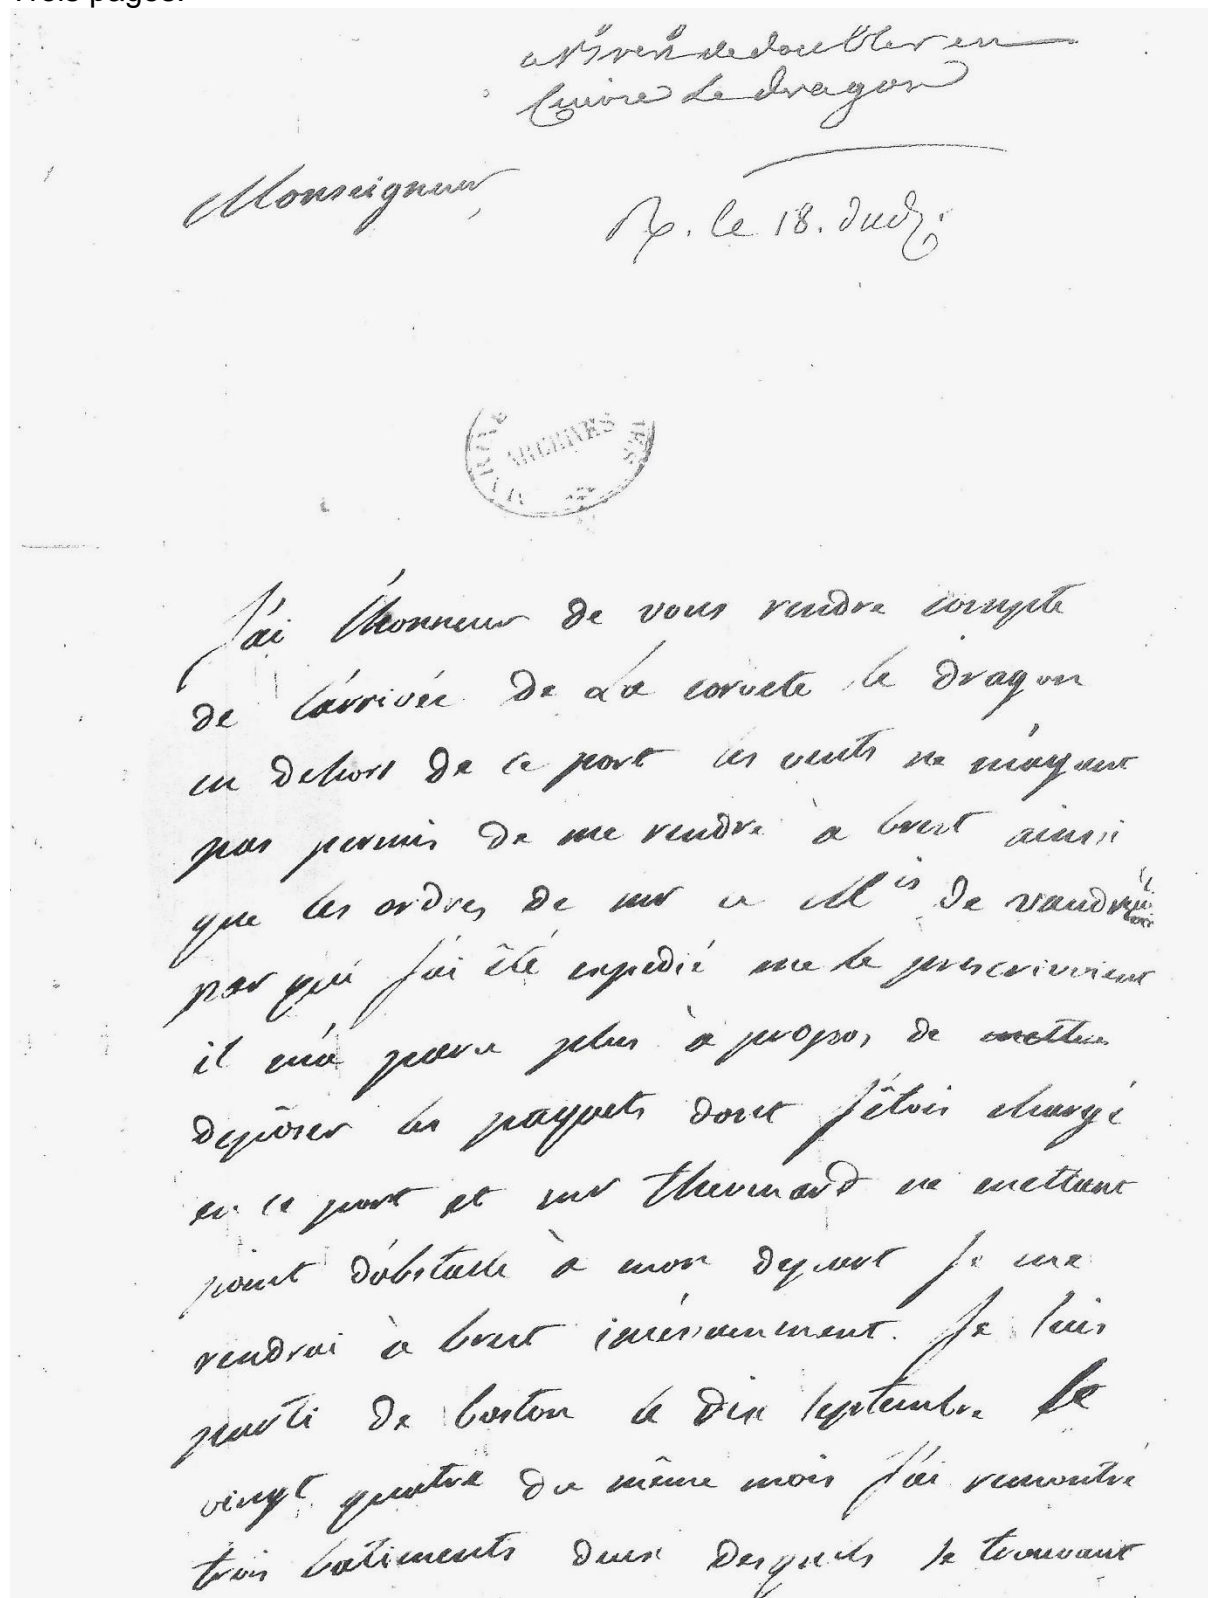 Trois pages.
de doubler en
Cuivre Le dragon
Monseigneur,
R. le 18. dud.
MARINE
ARCHIVES
J'ai l'honneur de vous rendre compte
de l'arrivée de La corvete le dragon
en dehors de ce port les vents ne m'ayant
pas permis de me rendre à brest ainsi
que les ordres de mr le Mis de vaudreuil
par qui j'ai êté expedié me le prescrivoient
il m'a paru plus à propos de mettre
deposer les paquets dont j'étois chargé
en ce port et mr thevenard ne mettant
point d'obstacle à mon depart je me
rendrai à brest incessamment. Je suis
parti de boston le dix septembre le
vingt quatre du même mois j'ai rencontré
trois batiments deux desquels se trouvant